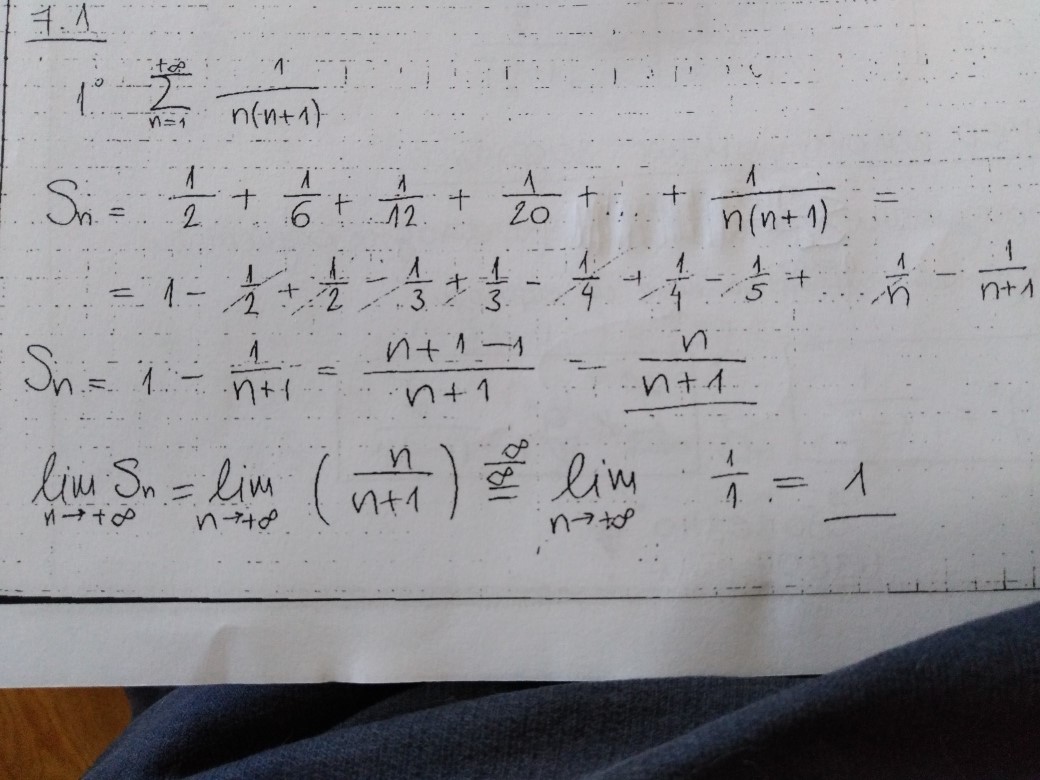 7.1
1° \sum_{n=1}^{+\infty} \frac{1}{n(n+1)}
S_n = \frac{1}{2} + \frac{1}{6} + \frac{1}{12} + \frac{1}{20} + ... + \frac{1}{n(n+1)} =
= 1 - \frac{1}{2} + \frac{1}{2} - \frac{1}{3} + \frac{1}{3} - \frac{1}{4} + \frac{1}{4} - \frac{1}{5} + ... \frac{1}{n} - \frac{1}{n+1}
S_n = 1 - \frac{1}{n+1} = \frac{n+1-1}{n+1} = \frac{n}{n+1}
\lim_{n \to +\infty} S_n = \lim_{n \to +\infty} \left( \frac{n}{n+1} \right) \overset{\frac{\infty}{\infty}}{=} \lim_{n \to +\infty} \frac{1}{1} = 1